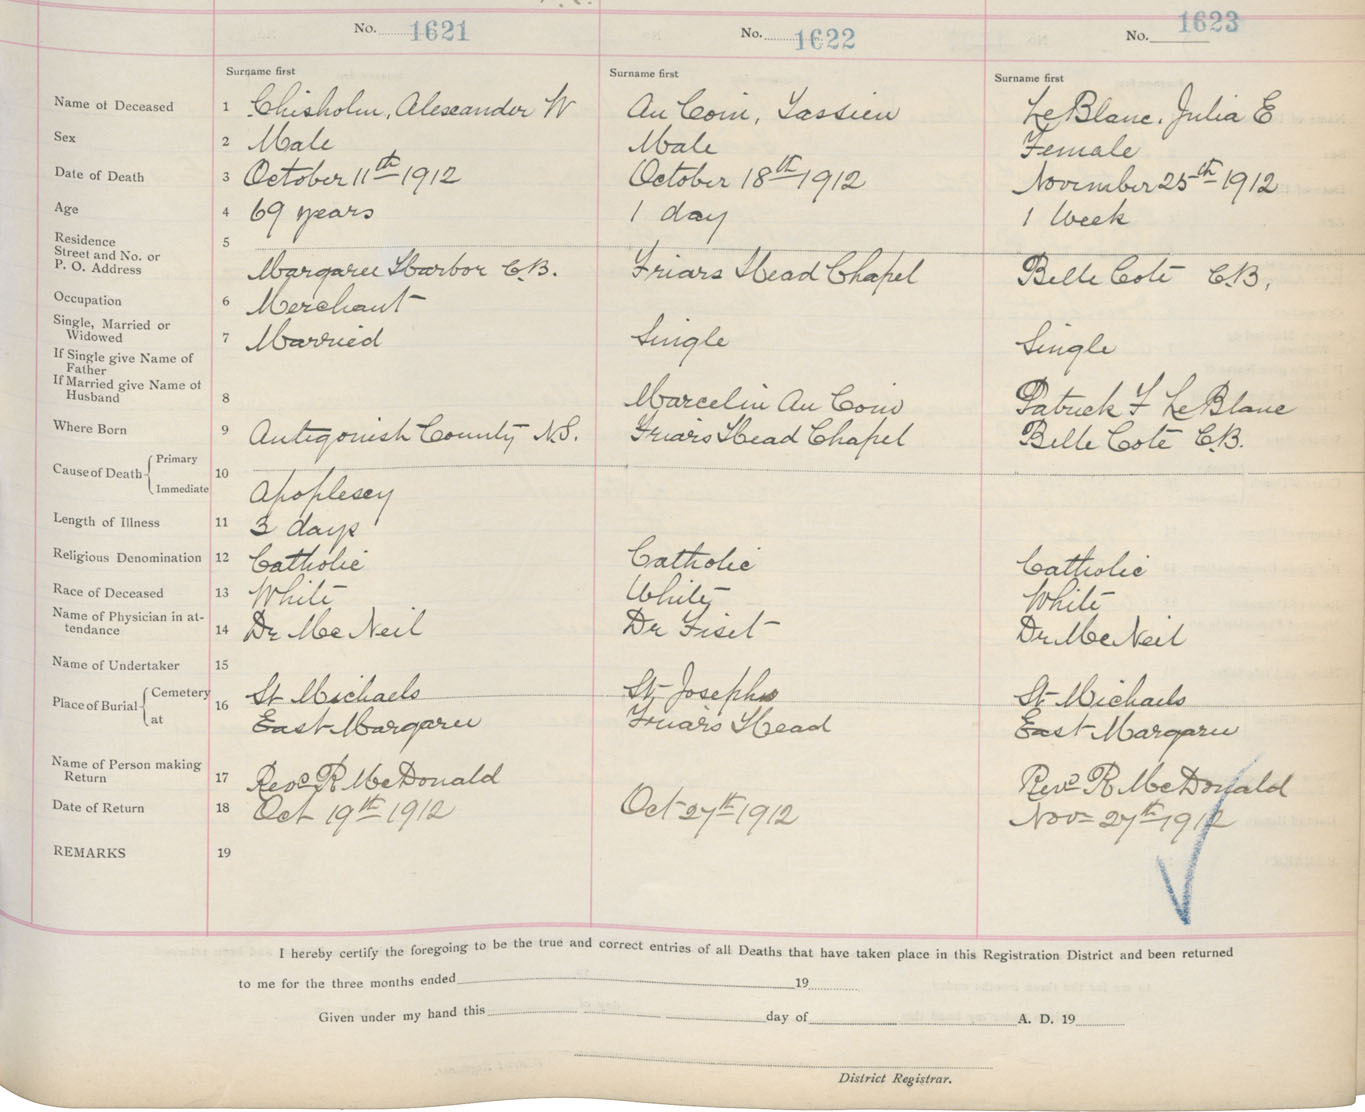 No. 1621 No. 1622 No. 1623
Surname first Surname first Surname first
Name of Deceased 1 Chisholm, Alexander W Au Coin, Tassien LeBlanc, Julia E
Sex 2 Male Male Female
Date of Death 3 October 11th 1912 October 18th 1912 November 25th 1912
Age 4 69 years 1 day 1 Week
Residence
Street and No. or
P. O. Address 5 Margaree Harbor C.B. Friars Head Chapel Belle Cote C.B,
Occupation 6 Merchant
Single, Married or
Widowed 7 Married Single Single
If Single give Name of
Father
If Married give Name of
Husband 8 Marcelin Au Coin Patrick F LeBlanc
Where Born 9 Antigonish County N.S. Friars Head Chapel Belle Cote C.B.
Cause of Death Primary
Immediate 10 Apoplexy
Length of Illness 11 3 days
Religious Denomination 12 Catholic Catholic Catholic
Race of Deceased 13 White White White
Name of Physician in at-
tendance 14 Dr McNeil Dr Fiset Dr McNeil
Name of Undertaker 15
Place of Burial Cemetery 16 St Michaels St Josephs St Michaels
at East Margaree Friars Head East Margaree
Name of Person making
Return 17 Revd R McDonald Revd R McDonald
Date of Return 18 Oct 19th 1912 Oct 27th 1912 Nov 27th 1912
REMARKS 19
I hereby certify the foregoing to be the true and correct entries of all Deaths that have taken place in this Registration District and been returned
to me for the three months ended 19
Given under my hand this day of A. D. 19
District Registrar.